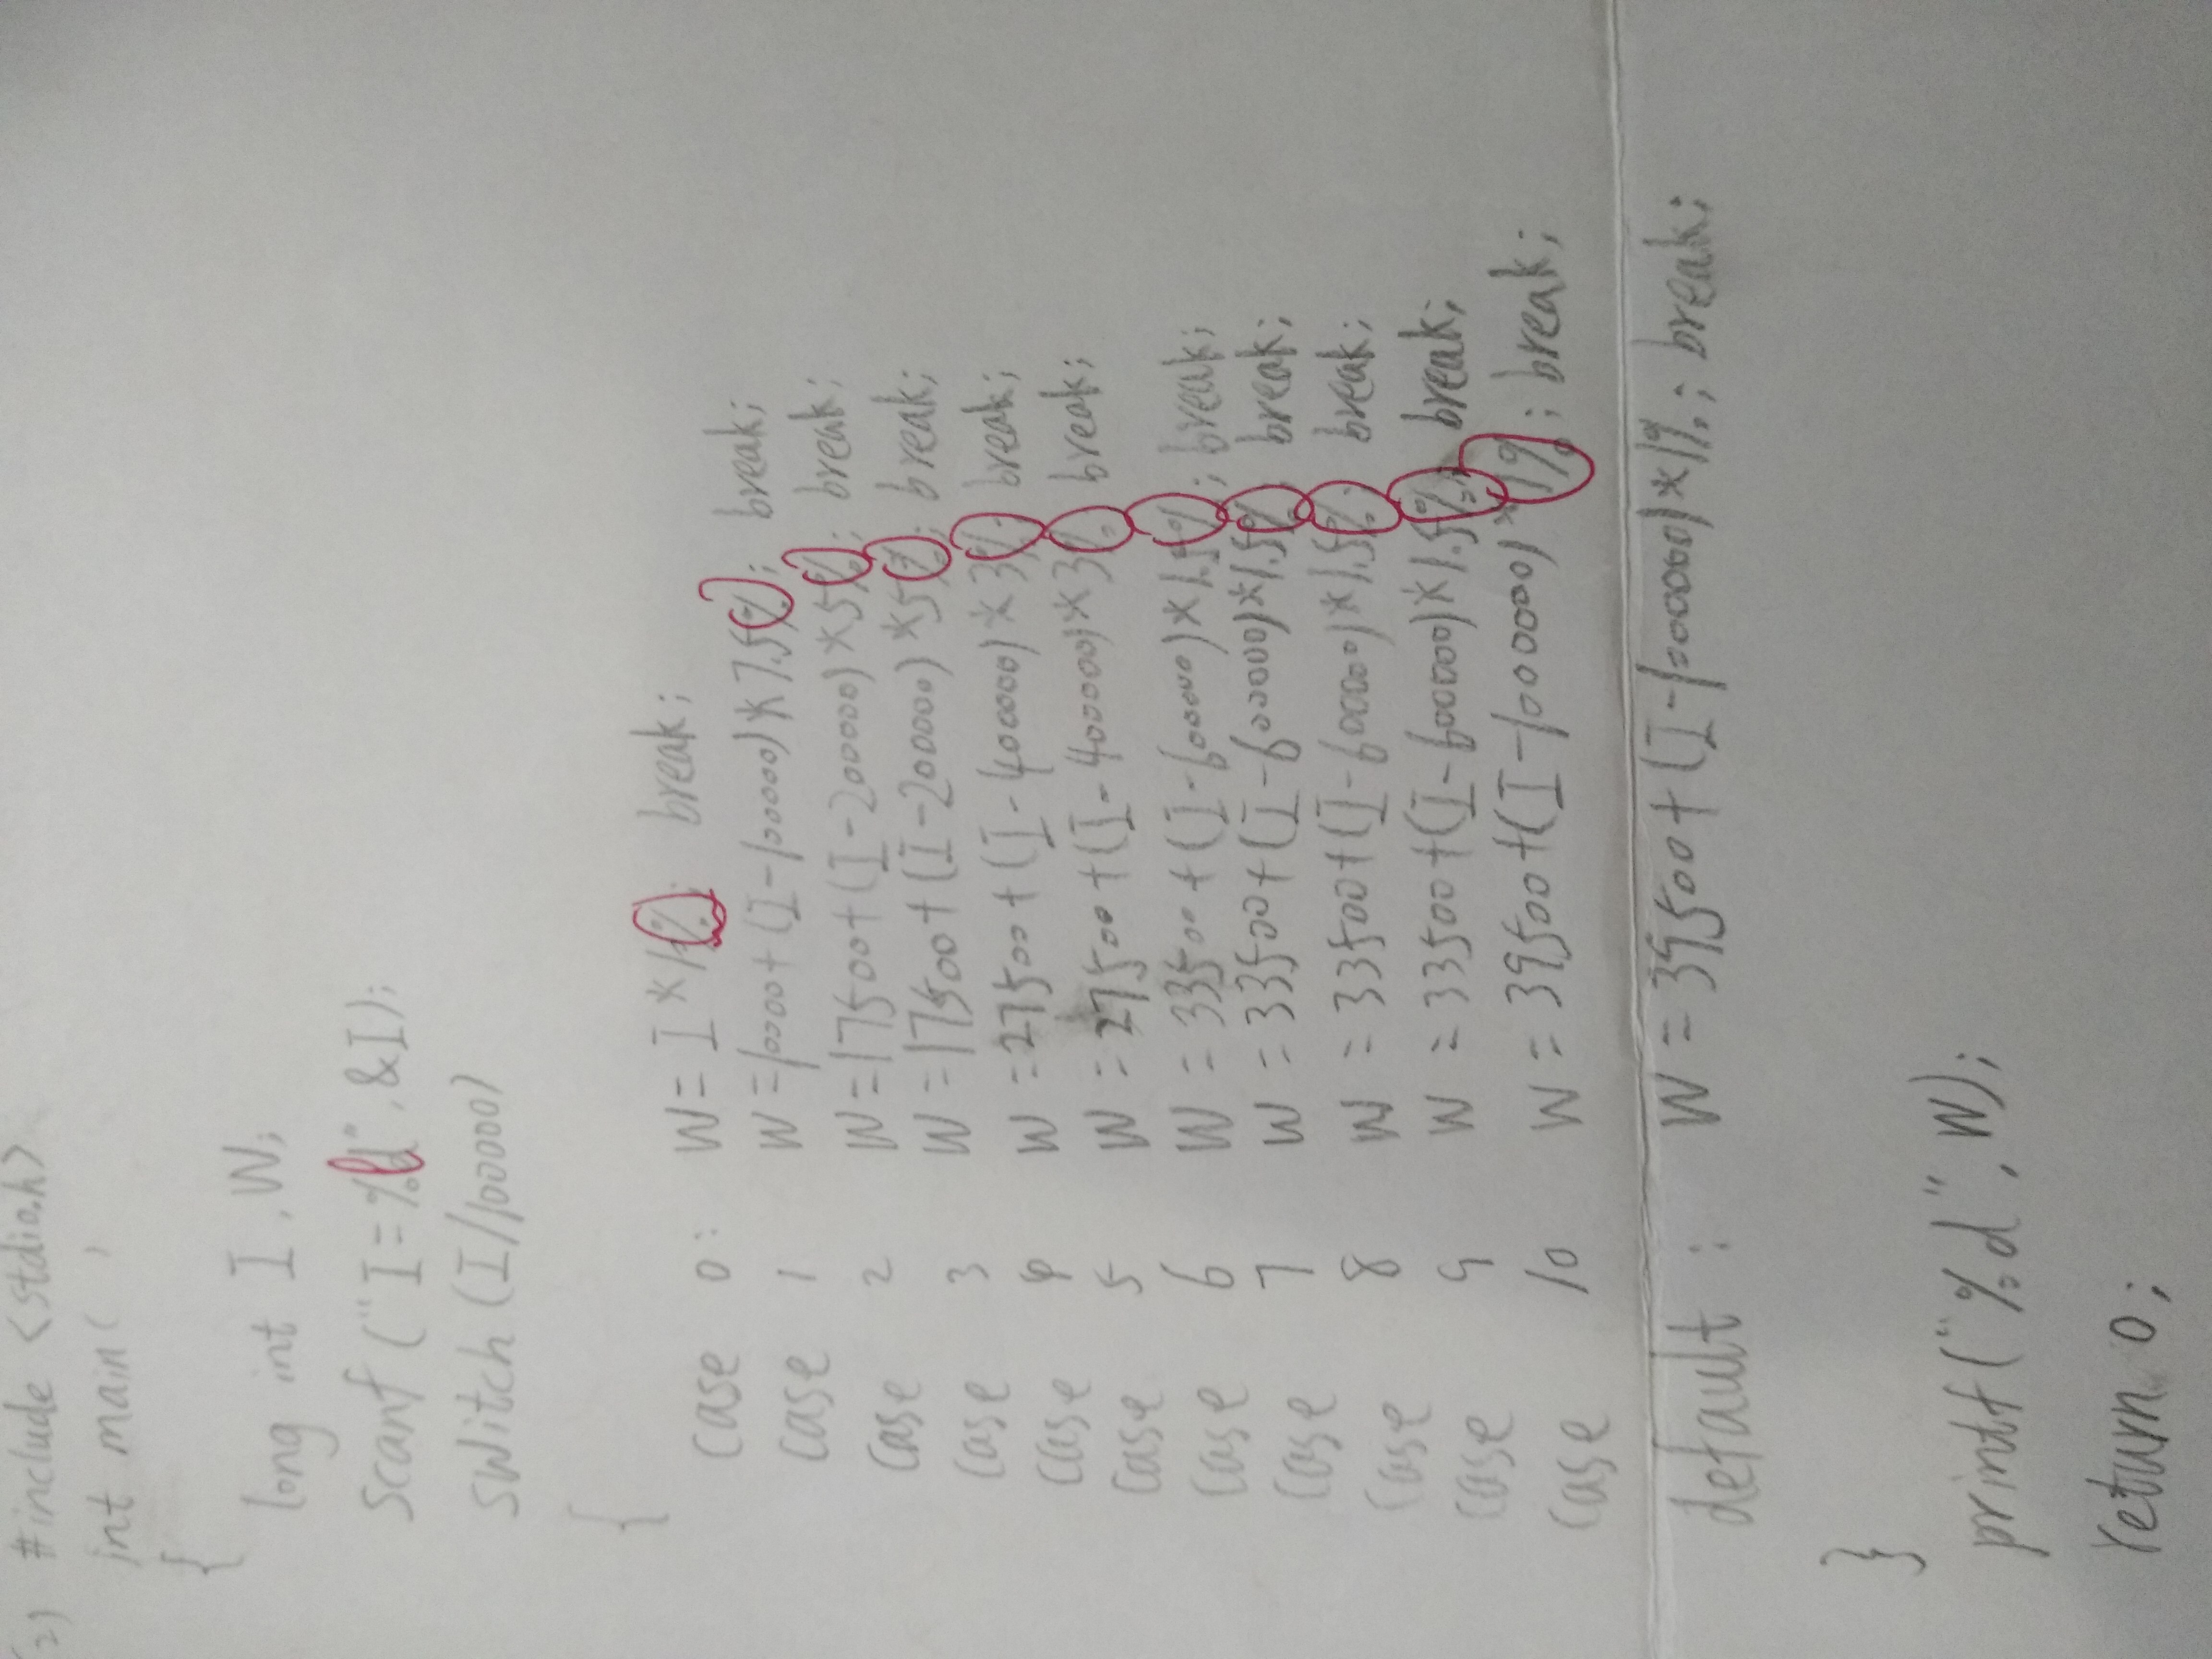 (2) #include <stdio.h>
int main( )
{
long int I, W;
scanf ("I=%ld", &I);
switch (I/100000)
{
case 0: W = I*1%; break;
case 1 W = 10000+(I-100000)*7.5%; break;
case 2 W = 17500+(I-200000)*5%; break;
case 3 W = 17500+(I-200000)*5%; break;
case 4 W = 27500+(I-400000)*3%; break;
case 5 W = 27500+(I-400000)*3%; break;
case 6 W = 33500+(I-600000)*1.5%; break;
case 7 W = 33500+(I-600000)*1.5%; break;
case 8 W = 33500+(I-600000)*1.5%; break;
case 9 W = 33500+(I-600000)*1.5%; break;
case 10 W = 39500+(I-1000000)*1%; break;
default : W = 39500+(I-1000000)*1%; break;
}
printf ("%d", W);
return 0;